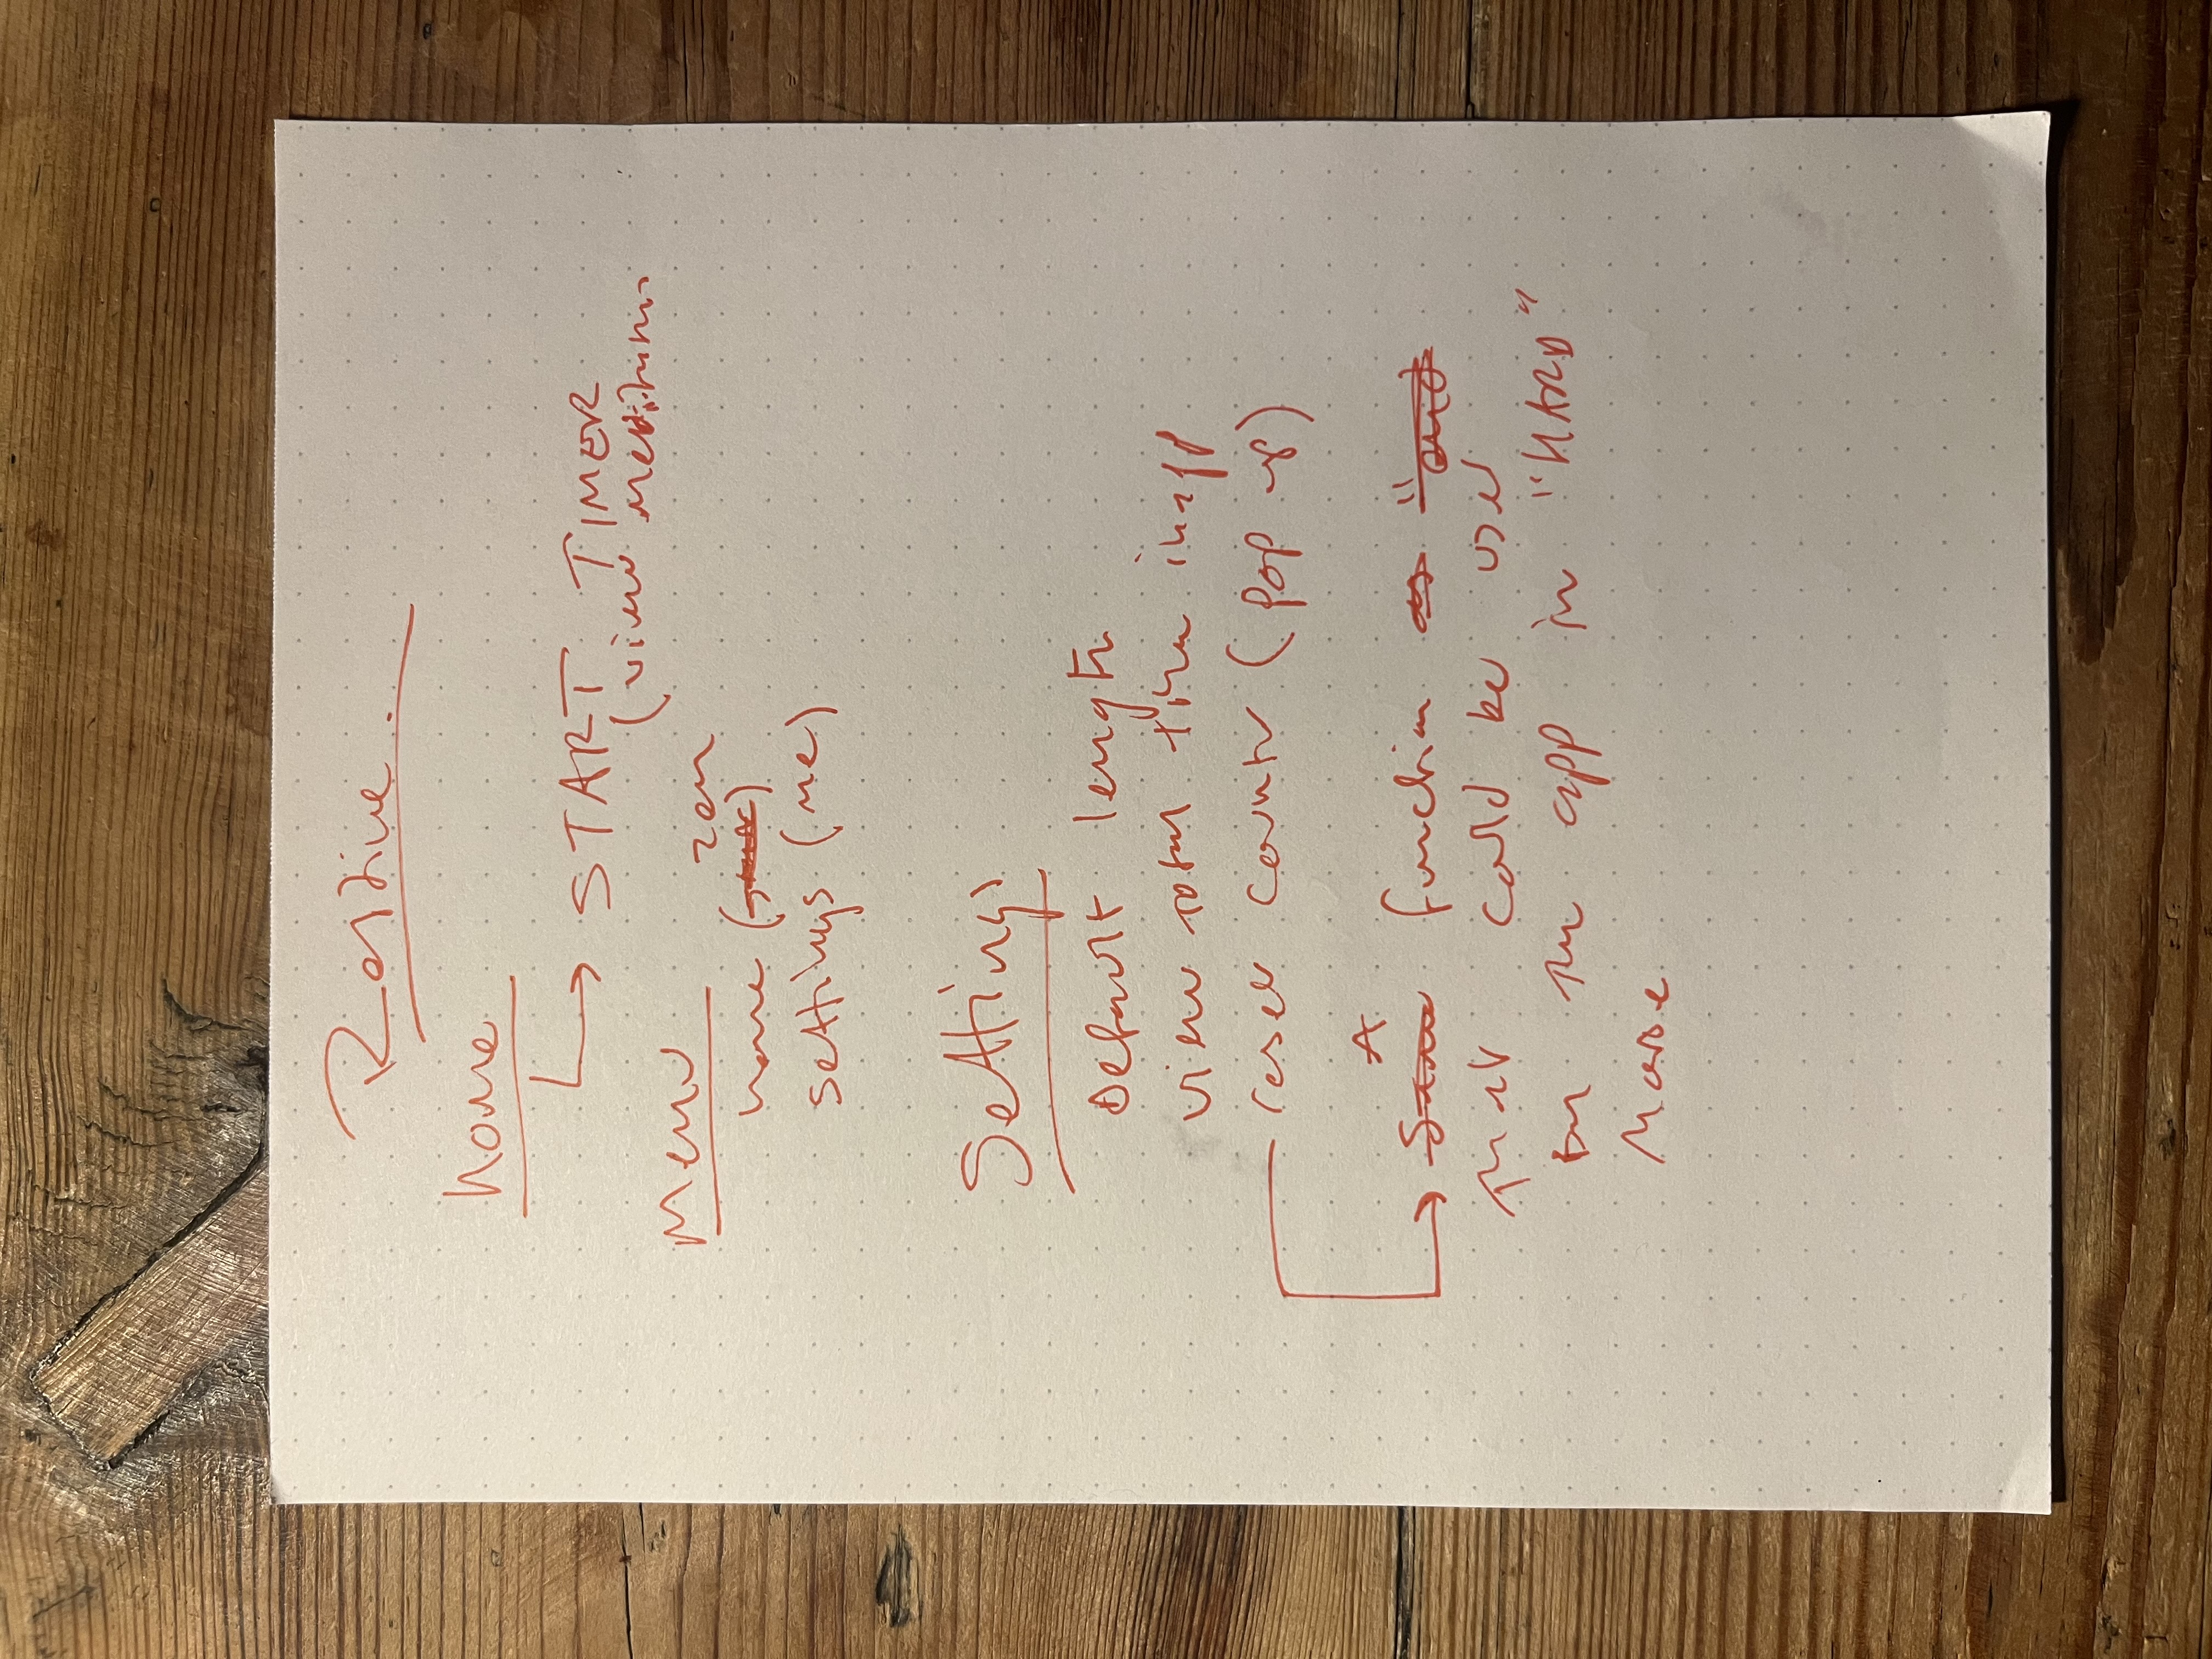 Home
START TIMER
(view
Menu
zen
home ( )
settings (me)
Settings
Default length
view total time in app
reset counter (pop up)
A
function
that could be used
by the app in "HARD"